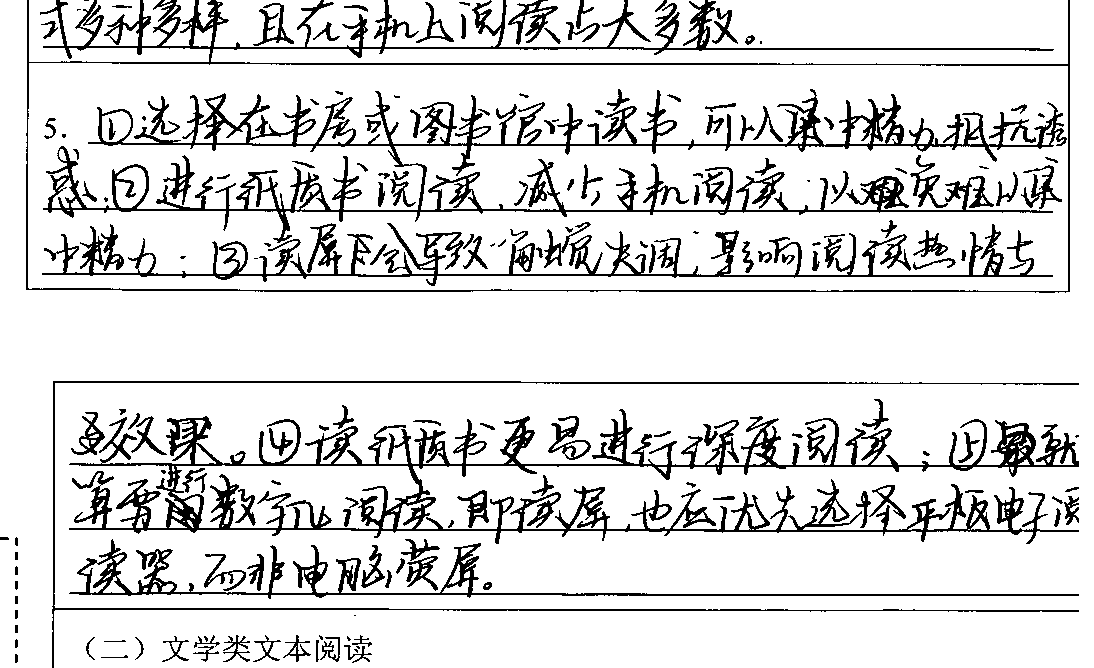 式多种多样，且在手机上阅读占大多数。
5. ①选择在书房或图书馆中读书，可以集中精力，抵抗诱
惑；②进行纸质书阅读，减少手机阅读，以免难以集
中精力；③读屏会导致触觉失调，影响阅读热情与
效果。④读纸质书更易进行深度阅读；⑤就
算需进行数字化阅读，即读屏，也应优先选择平板电子阅
读器，而非电脑荧屏。
（二）文学类文本阅读